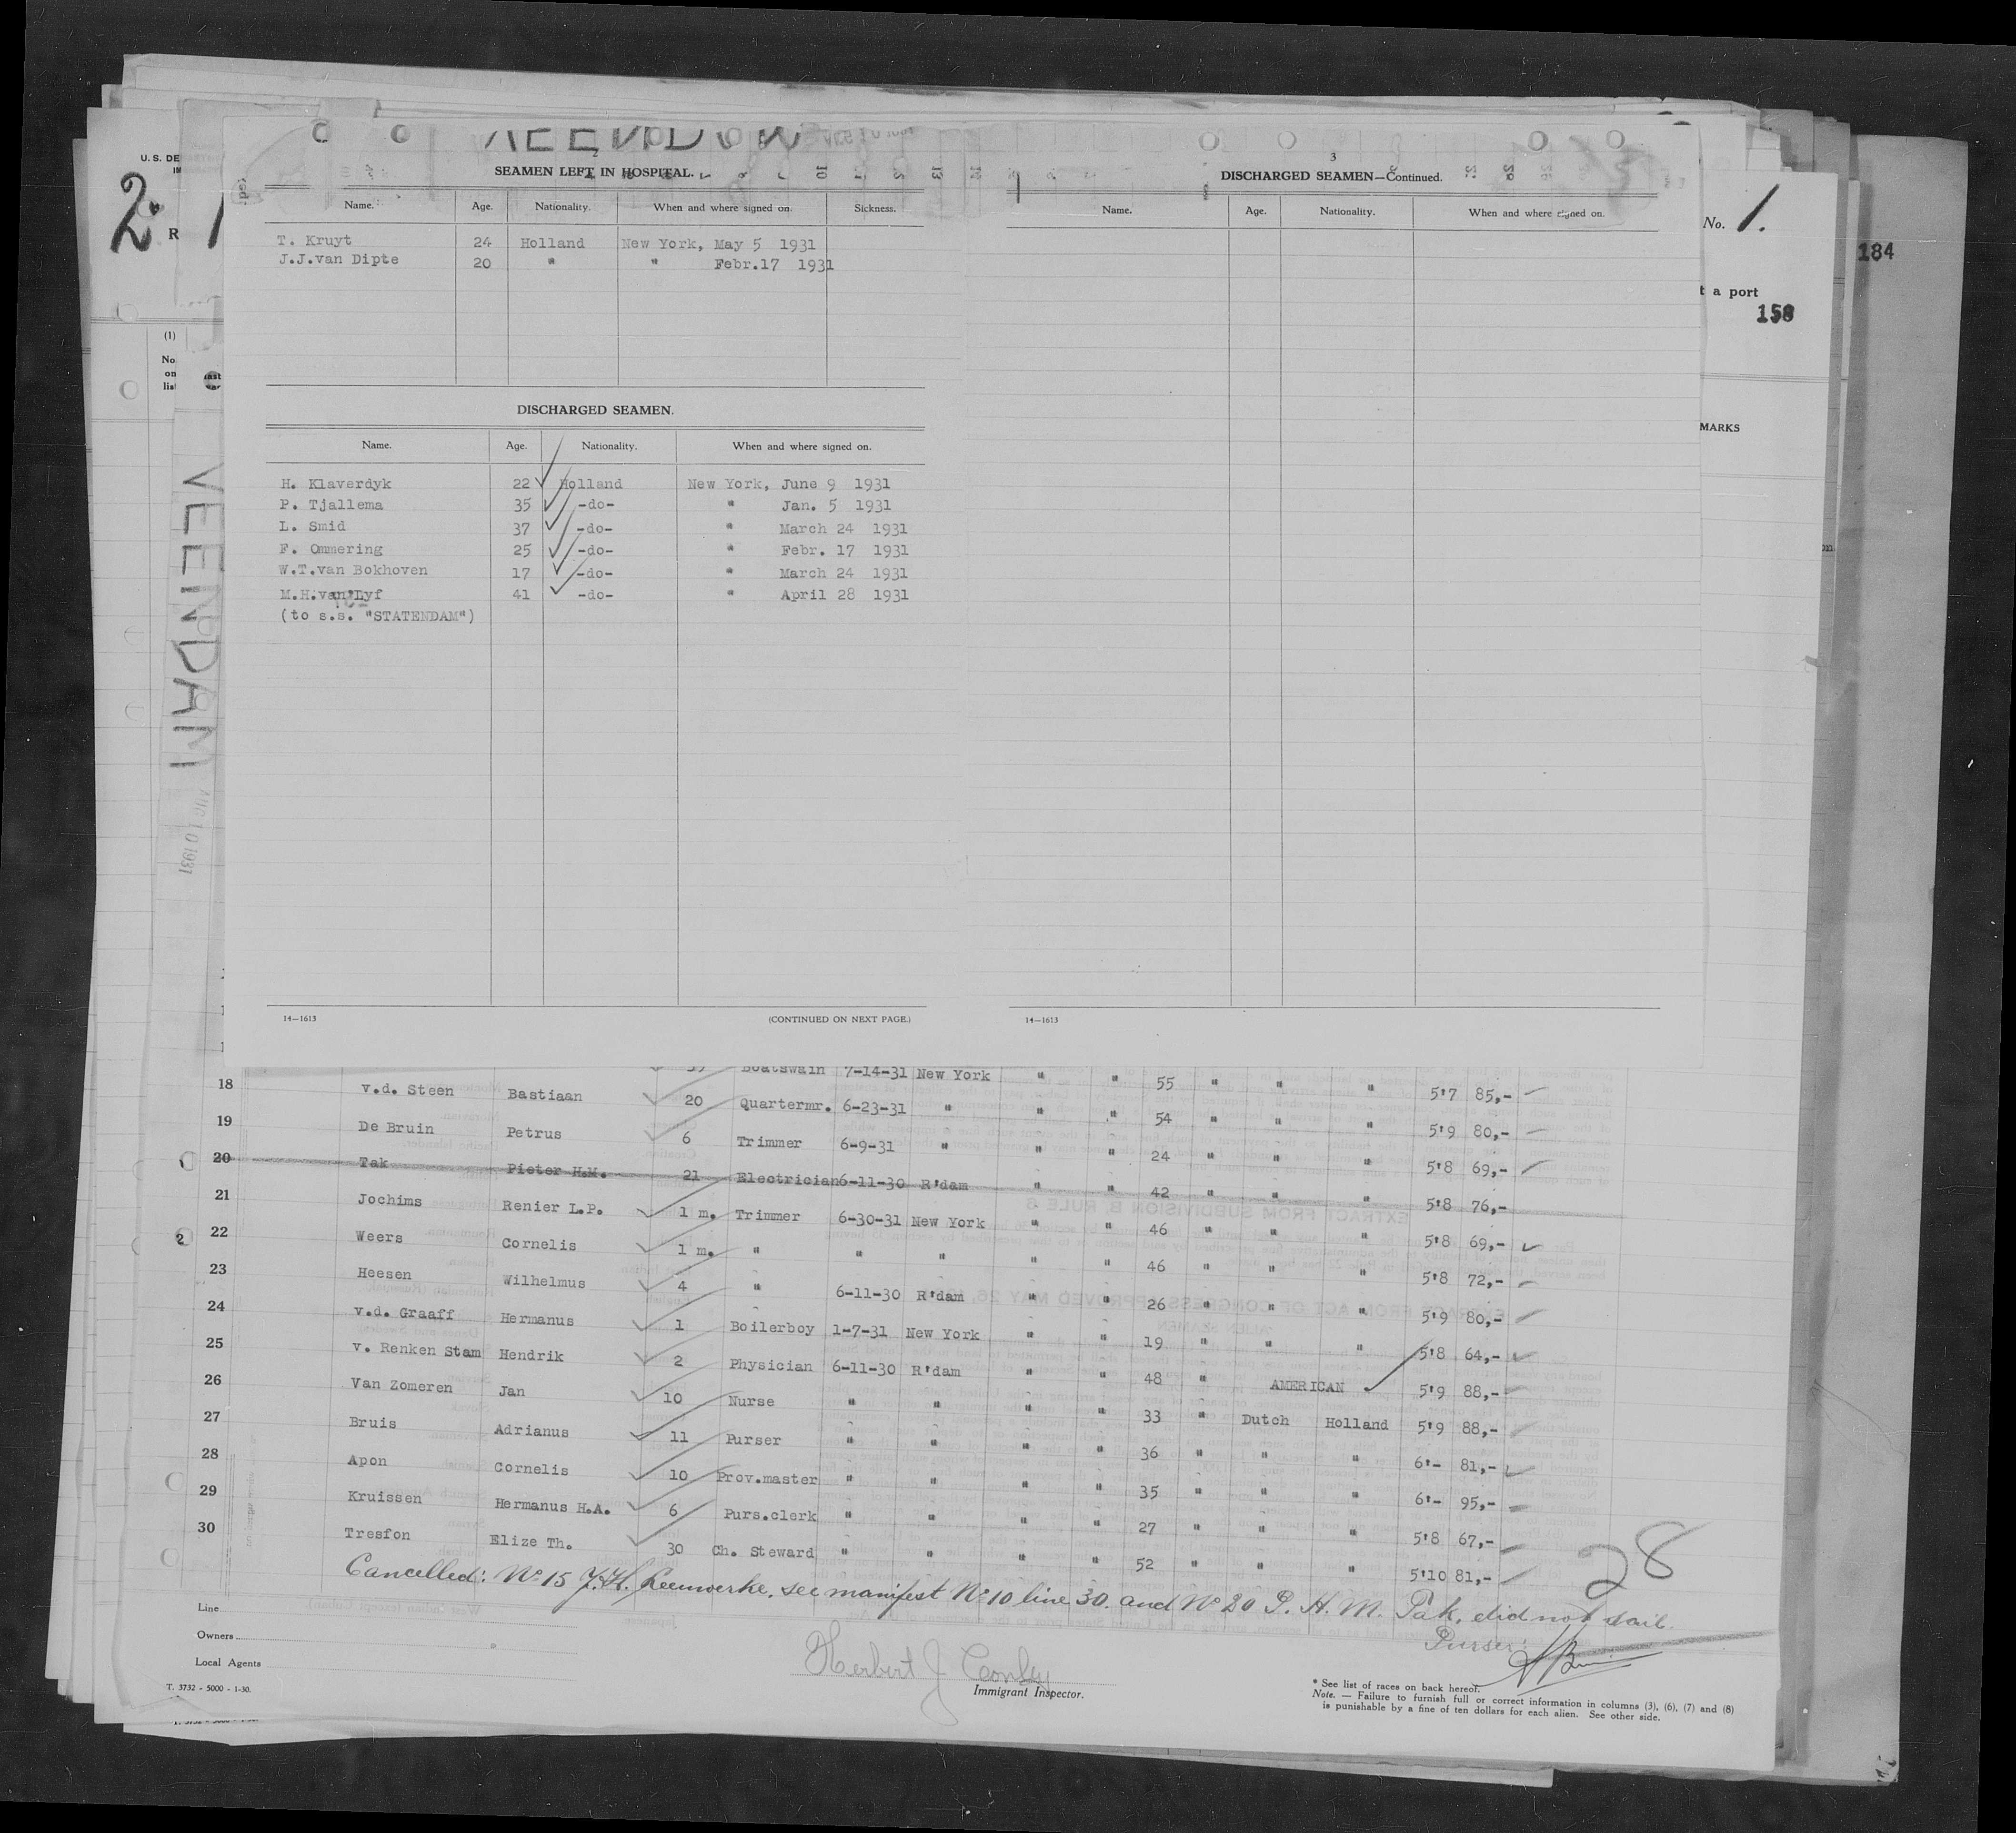 U. S. DE
2.
R
No. 1.
184
t a port
158
(1)
No.
on
list
MARKS
VEENDAM
AUG 10 1931
2
SEAMEN LEFT IN HOSPITAL.
Name. Age. Nationality. When and where signed on. Sickness.
T. Kruyt 24 Holland New York, May 5 1931
J.J.van Dipte 20 " " Febr.17 1931
DISCHARGED SEAMEN.
Name. Age. Nationality. When and where signed on.
H. Klaverdyk 22 Holland New York, June 9 1931
P. Tjallema 35 -do- " Jan. 5 1931
L. Smid 37 -do- " March 24 1931
F. Ommering 25 -do- " Febr. 17 1931
W.T.van Bokhoven 17 -do- " March 24 1931
M.H.van Dyf 41 -do- " April 28 1931
(to s.s. "STATENDAM")
14—1613 (CONTINUED ON NEXT PAGE.)
3
DISCHARGED SEAMEN—Continued.
Name. Age. Nationality. When and where signed on.
14—1613
Boatswain 7-14-31 New York " " 55 " " " 5'7 85,-
18 v.d. Steen Bastiaan 20 Quartermr. 6-23-31 " " " 54 " " " 5'9 80,-
19 De Bruin Petrus 6 Trimmer 6-9-31 " " " 24 " " " 5'8 69,-
20 Tak Pieter H.M. 21 Electrician 6-11-30 R'dam " " 42 " " " 5'8 76,-
21 Jochims Renier L.P. 1 m. Trimmer 6-30-31 New York " " 46 " " " 5'8 69,-
22 Weers Cornelis 1 m. " " " " " 46 " " " 5'8 72,-
23 Heesen Wilhelmus 4 " 6-11-30 R'dam " " 26 " " " 5'9 80,-
24 v.d. Graaff Hermanus 1 Boilerboy 1-7-31 New York " " 19 " " " 5'8 64,-
25 v. Renken Stam Hendrik 2 Physician 6-11-30 R'dam " " 48 " AMERICAN 5'9 88,-
26 Van Zomeren Jan 10 Nurse " " " " 33 " Dutch Holland 5'9 88,-
27 Bruis Adrianus 11 Purser " " " " 36 " " " 6'- 81,-
28 Apon Cornelis 10 Prov.master " " " " 35 " " " 6'- 95,-
29 Kruissen Hermanus H.A. 6 Purs.clerk " " " " 27 " " " 5'8 67,-
30 Tresfon Elize Th. 30 Ch. Steward " " " " 52 " " " 5'10 81,-
28
Cancelled: No 15 J.H. Leenwerke, see manifest No 10 line 30. and No 20 P. H. M. Tak, did not sail.
Purser:
Line
Owners
Local Agents
T. 3732 - 5000 - 1-30.
Herbert J Conly
Immigrant Inspector.
* See list of races on back hereof.
Note. — Failure to furnish full or correct information in columns (3), (6), (7) and (8)
is punishable by a fine of ten dollars for each alien. See other side.